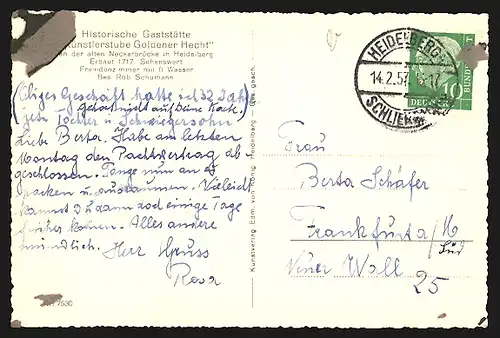 Historische Gaststätte
"Künstlerstube Goldener Hecht"
an der alten Neckarbrücke in Heidelberg
Erbaut 1717. Sehenswert
Fremdenzimmer mit fl. Wasser
Bes. Rob. Schumann
(Obiges Geschäft hatte ich 32 Jahre
jetzt Tochter u. Schwiegersohn
Liebe Berta. Habe am letzten
Montag den Pachtvertrag ab-
geschlossen. Fange nun an
packen u. ausräumen. Vieleicht
kannst Du dann noch einige Tage
früher kommen. Alles andere
mündlich.
Herz Gruss
Rosa
7530
Kunstverlag Edm. von König, Heidelberg
Ges. gesch.
HEIDELBERG
14.2.57
SCHLIERB
10
DEUTSCHE BUNDESPOST
Frau
Berta Schäfer
Frankfurt a/M
Süd
Wall
25